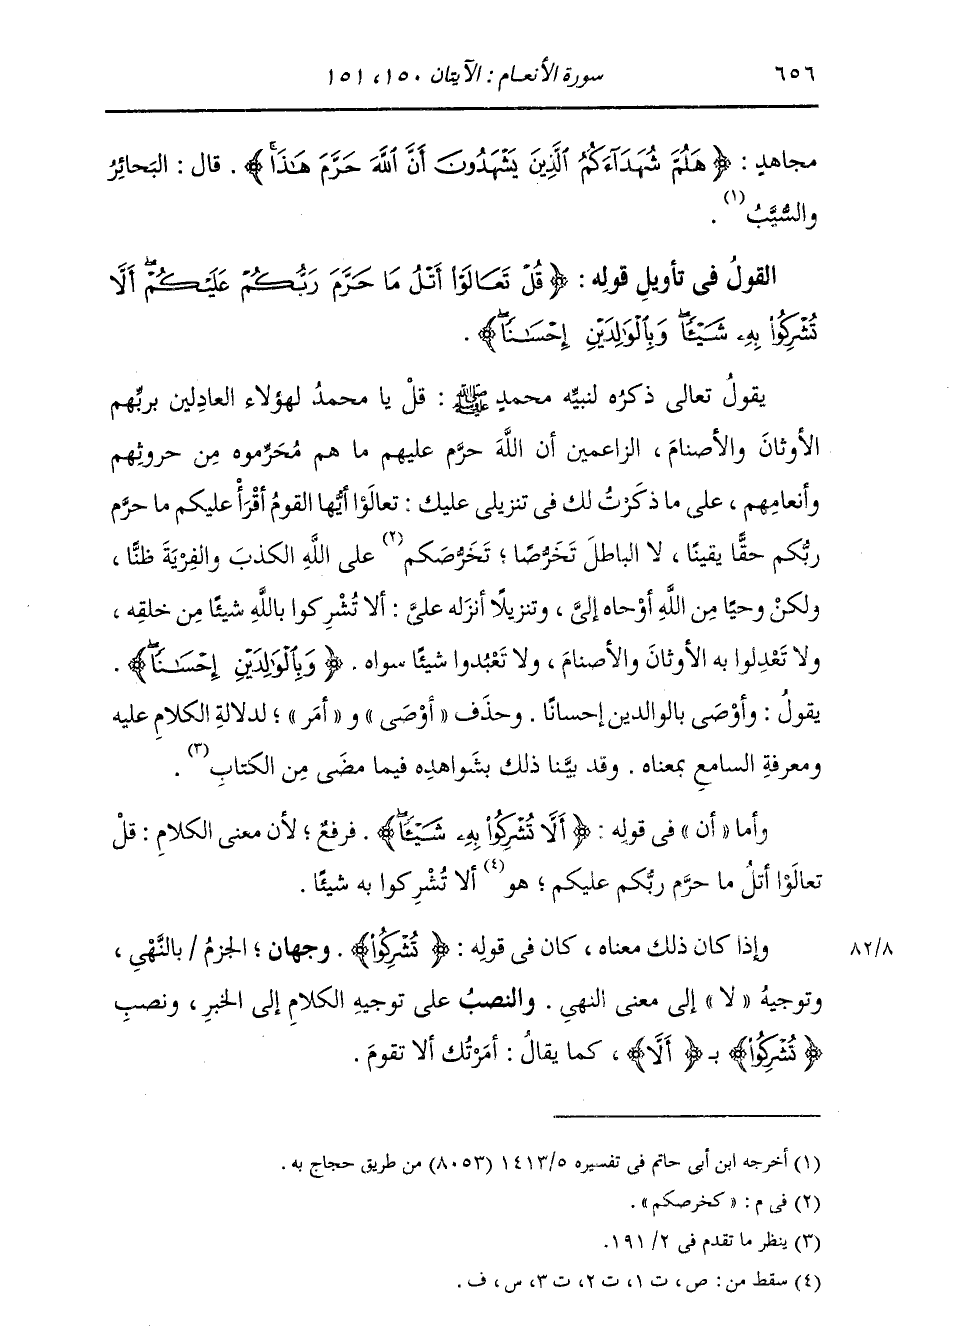 ٦٥٦ سورة الأنعام : الآيتان ١٥٠، ١٥١
مجاهدٍ : ﴿ هَلُمَّ شُهَدَآءَكُمُ ٱلَّذِينَ يَشْهَدُونَ أَنَّ ٱللَّهَ حَرَّمَ هَٰذَاۖ ﴾ . قال : البَحائِرُ
والسُّيَّبُ(١) .
القولُ فى تأويلِ قولِه : ﴿ قُلْ تَعَالَوْا۟ أَتْلُ مَا حَرَّمَ رَبُّكُمْ عَلَيْكُمْۖ أَلَّا
تُشْرِكُوا۟ بِهِۦ شَيْـًٔاۖ وَبِٱلْوَٰلِدَيْنِ إِحْسَٰنًاۖ ﴾ .
يقولُ تعالى ذكرُه لنبيِّه محمدٍ ﷺ : قلْ يا محمدُ لهؤلاء العادِلين بربِّهم
الأوثانَ والأصنامَ ، الزاعمين أن اللَّهَ حرَّم عليهم ما هم مُحَرِّموه مِن حروثِهم
وأنعامِهم ، على ما ذكَرْتُ لك فى تنزيلى عليك : تعالَوْا أيُّها القومُ أقْرَأْ عليكم ما حرَّم
ربُّكم حقًّا يقينًا ، لا الباطلَ تَخَرُّصًا ؛ تَخَرُّصَكم(٢) على اللَّهِ الكذبَ والفِرْيَةَ ظنًّا ،
ولكنْ وحيًا مِن اللَّهِ أوْحاه إلىَّ ، وتنزيلًا أنزَله علىَّ : ألا تُشْرِكوا باللَّهِ شيئًا مِن خلقِه ،
ولا تَعْدِلوا به الأوثانَ والأصنامَ ، ولا تَعْبُدوا شيئًا سواه . ﴿ وَبِٱلْوَٰلِدَيْنِ إِحْسَٰنًاۖ ﴾ .
يقولُ : وأوْصَى بالوالدين إحسانًا . وحذَف « أوْصَى » و « أمَر » ؛ لدلالةِ الكلامِ عليه
ومعرفةِ السامعِ بمعناه . وقد بيَّنا ذلك بشَواهدِه فيما مضَى مِن الكتابِ(٣) .
وأما « أن » فى قولِه : ﴿ أَلَّا تُشْرِكُوا۟ بِهِۦ شَيْـًٔاۖ ﴾ . فرفعٌ ؛ لأن معنى الكلامِ : قلْ
تعالَوْا أتلُ ما حرَّم ربُّكم عليكم ؛ هو(٤) ألا تُشْرِكوا به شيئًا .
وإذا كان ذلك معناه ، كان فى قولِه : ﴿ تُشْرِكُوا۟ ﴾ . وجهان ؛ الجزمُ / بالنَّهْىِ ، ٨٢/٨
وتوجيهُ « لا » إلى معنى النهىِ . والنصبُ على توجيهِ الكلامِ إلى الخبرِ ، ونصبِ
﴿ تُشْرِكُوا۟ ﴾ بـ ﴿ أَلَّا ﴾ ، كما يقالُ : أمَرْتُك ألا تقومَ .
(١) أخرجه ابن أبى حاتم فى تفسيره ١٤١٣/٥ (٨٠٥٣) من طريق حجاج به .
(٢) فى م : « كخرصكم » .
(٣) ينظر ما تقدم فى ٢/ ١٩١.
(٤) سقط من : ص ، ت ١، ت ٢، ت ٣، س ، ف .